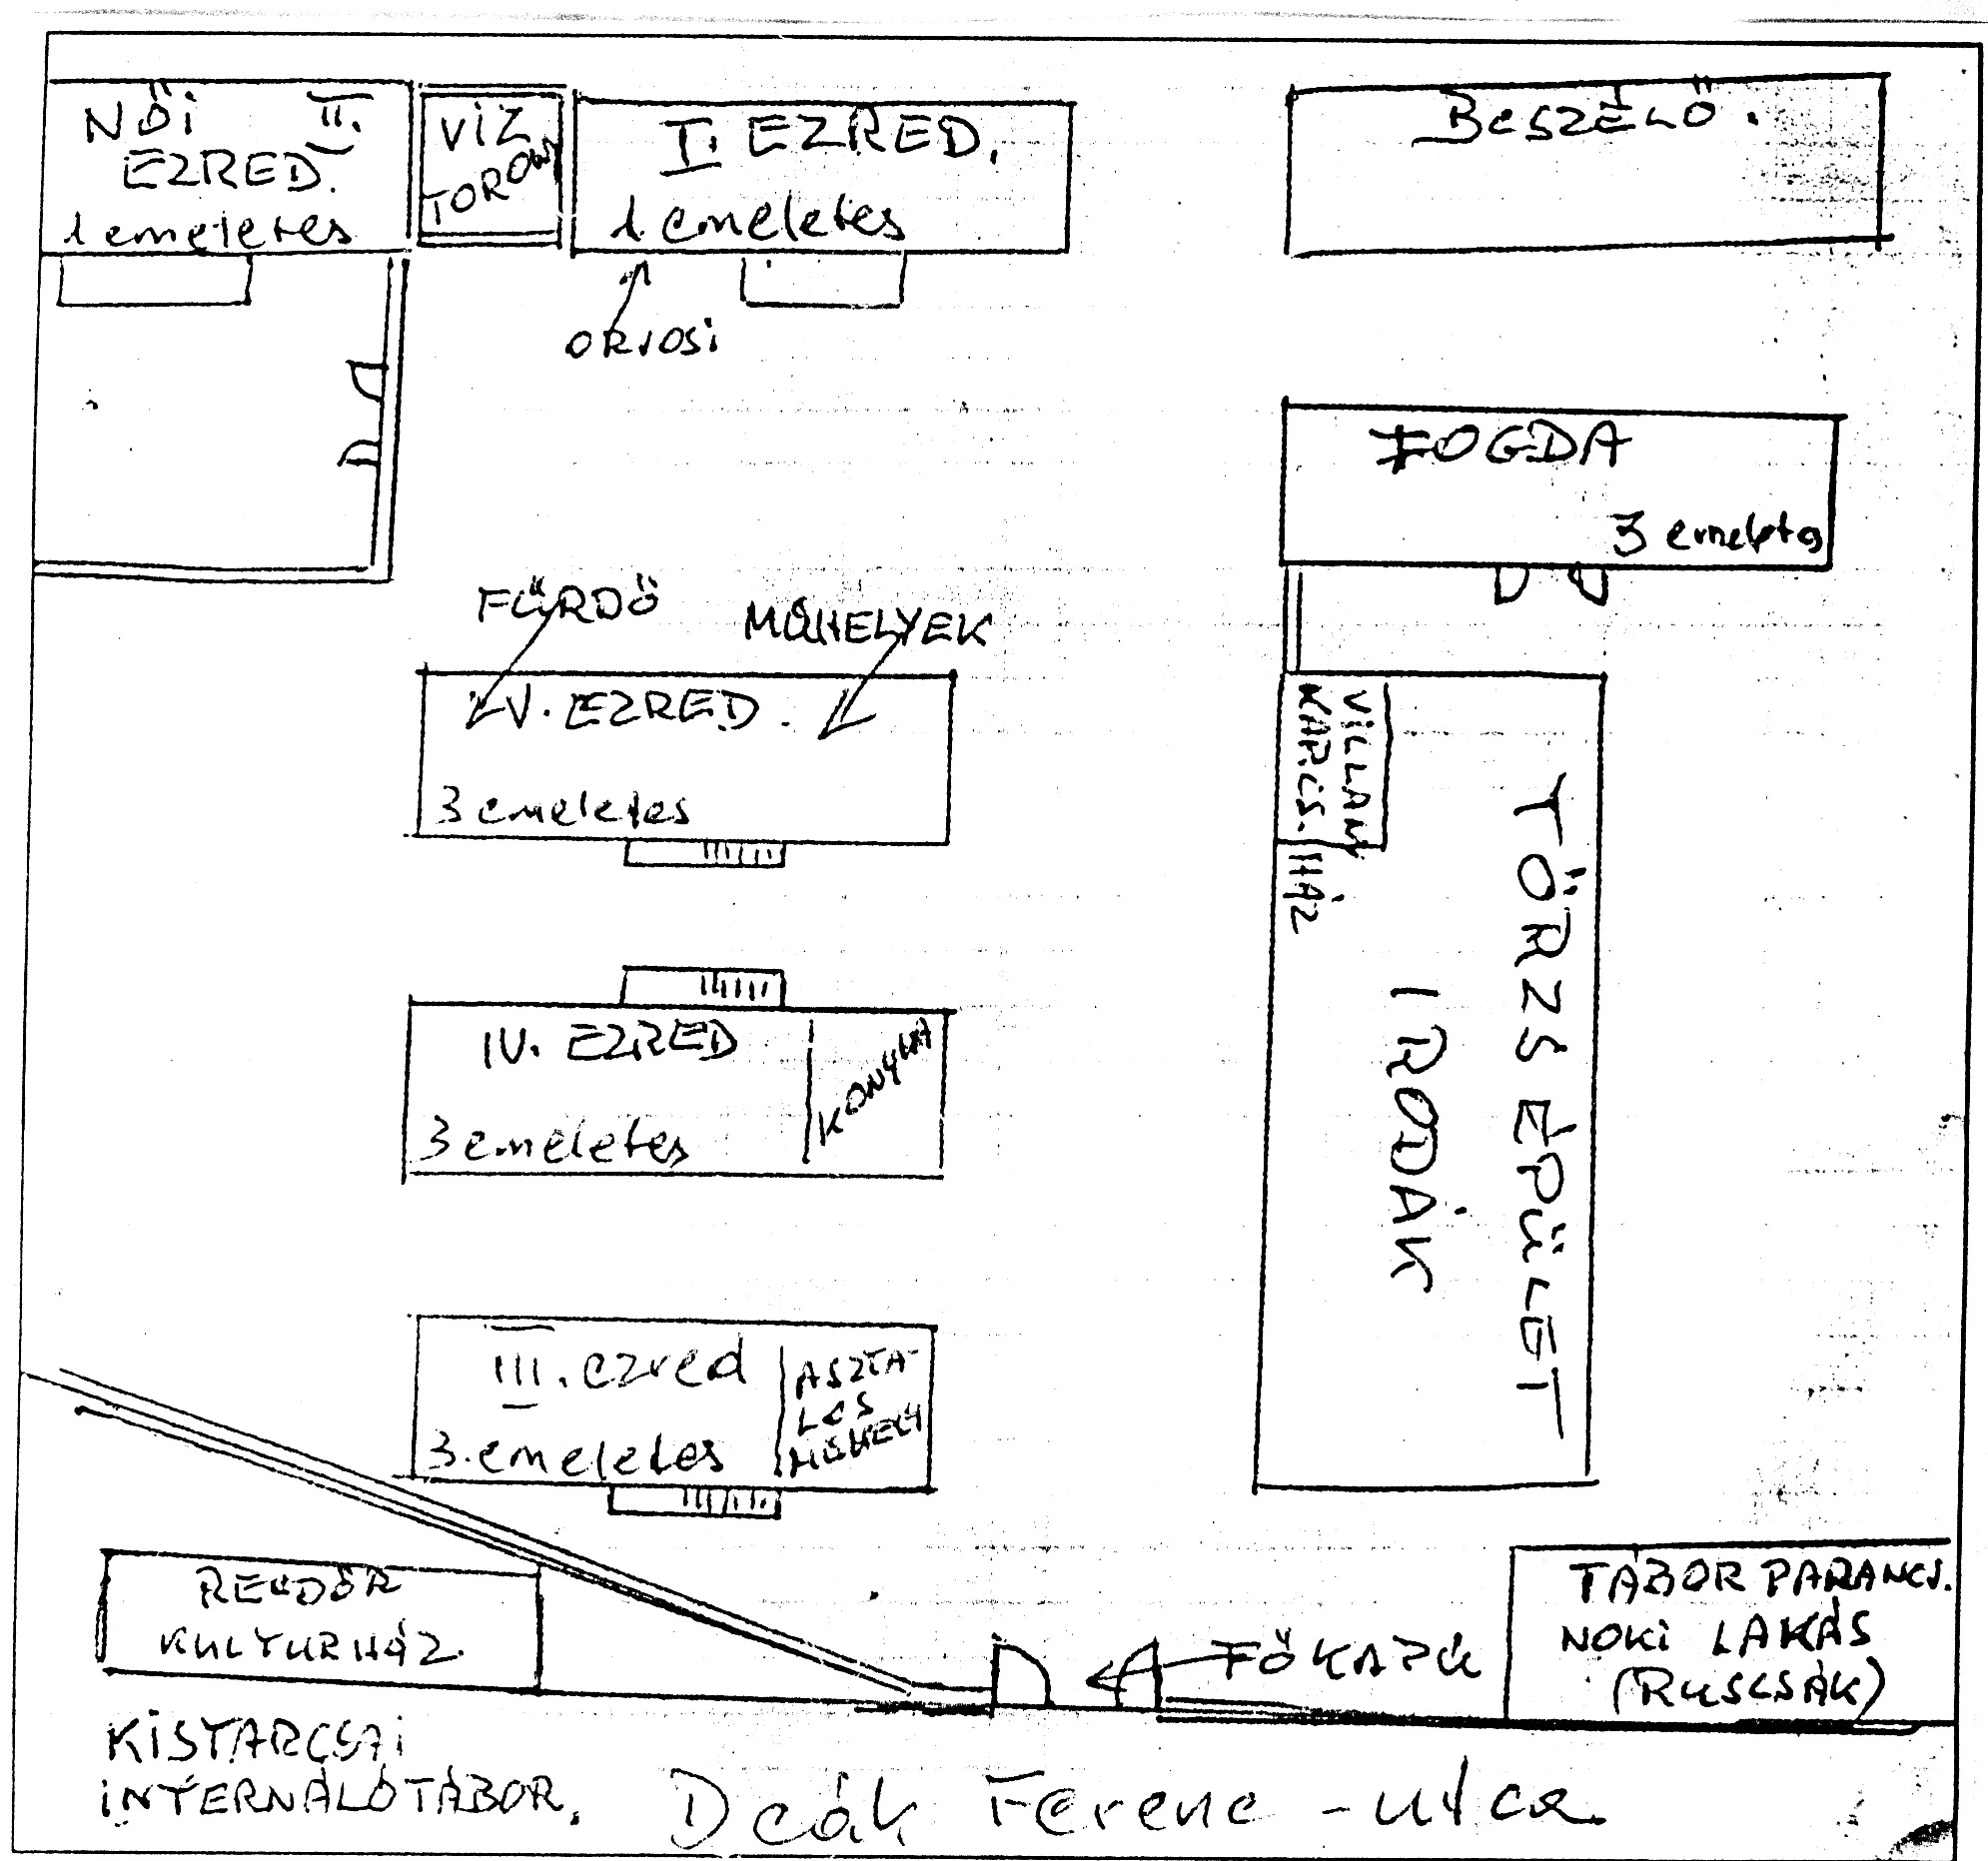 NŐI II.
EZRED.
1 emeletes
VÍZ
TORONY
I. EZRED.
1 emeletes
BESZÉLŐ.
ORVOSI
FOGDA
3 emeletes
FÜRDŐ
MŰHELYEK
V. EZRED.
3 emeletes
VILLAN
KAPCS. HÁZ
TÖRZSÉPÜLET
IRODÁK
IV. EZRED
3 emeletes
KONYHA
III. ezred
3. emeletes
ASZTA-
LOS
MŰHELY
RENDŐR
KULTURHÁZ.
FŐKAPU
TÁBOR PARANCS.
NOKI LAKÁS
(RUSCSÁK)
KISTARCSAI
INTERNÁLÓTÁBOR.
Deák Ferenc - utca.